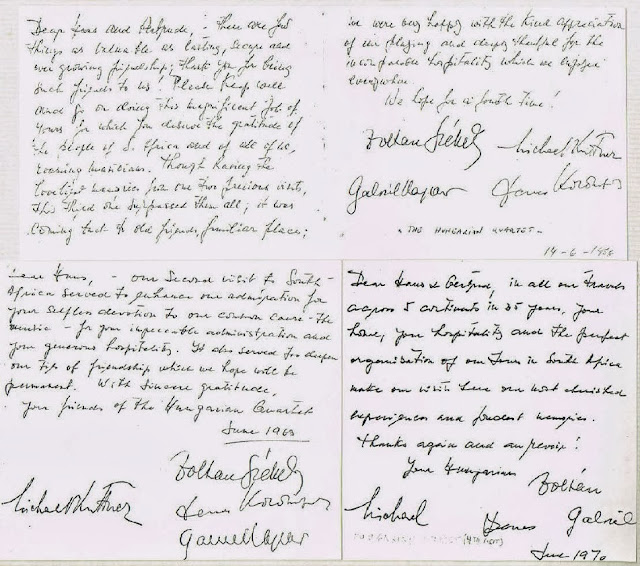 Dear Hans and Gertrude, - There are few
things as valuable as lasting, secure and
ever growing friendship; thank you for being
such friends to us! Please keep well
and go on doing this magnificent job of
yours for which you deserve the gratitude of
the people of S. Africa and of all of us,
roaming musicians. Though having the
loveliest memories from our two previous visits,
this third one surpassed them all; it was
coming back to old friends, familiar places;
we were very happy with the kind appreciation
of our playing and deeply thankful for the
incomparable hospitality which we enjoyed
everywhere.
We hope for a fourth time!
Zoltan Székely
Michael Kuttner
Gabriel Magyar
Denes Koromzay
"THE HUNGARIAN QUARTET"
14-6-1966
Dear Hans, - our second visit to South-
Africa served to enhance our admiration for
your selfless devotion to our common cause - the
music - for your impeccable administration and
your generous hospitality. It also served to deepen
our ties of friendship which we hope will be
permanent. With sincere gratitude,
your friends of the Hungarian Quartet
June 1963
Zoltan Székely
Michael Kuttner
Denes Koromzay
Gabriel Magyar
Dear Hans & Gertrud, in all our travels
across 5 continents in 35 years, your
home, your hospitality and the perfect
organisation of our tours in South Africa
make our visits here our most cherished
experiences and fondest memories.
Thanks again and au revoir!
Your Hungarians
Zoltán
Michael
Denes
Gabriel
June 1970